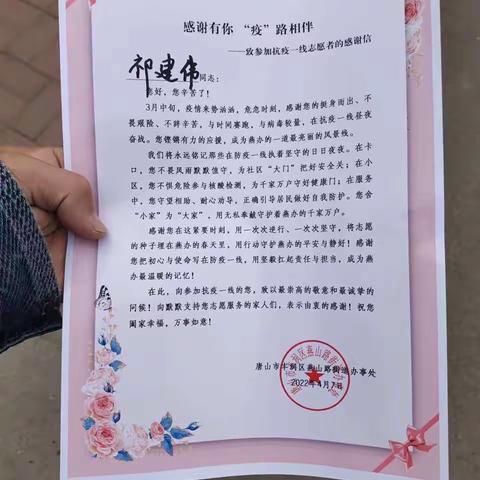 感谢有你 “疫”路相伴
——致参加抗疫一线志愿者的感谢信
祁建伟同志：
您好，您辛苦了！
3月中旬，疫情来势汹汹，危急时刻，感谢您的挺身而出、不
畏艰险、不辞辛劳，与时间赛跑，与病毒较量，在抗疫一线昼夜
奋战。您铿锵有力的应援，成为燕办的一道最亮丽的风景线。
我们将永远铭记那些在防疫一线执着坚守的日日夜夜。在卡
口，您不畏风雨默默值守，为社区“大门”把好安全关；在小
区，您不惧危险参与核酸检测，为千家万户守好健康门；在服务
中，您守望相助、耐心劝导，正确引导居民做好自我防护。您舍
“小家”为“大家”，用无私奉献守护着燕办的千家万户。
感谢您在这紧要时刻，用一次次逆行、一次次坚守，将志愿
的种子埋在燕办的春天里，用行动守护燕办的平安与静好！感谢
您把初心与使命写在防疫一线，用坚毅扛起责任与担当，成为燕
办最温暖的记忆！
在此，向参加抗疫一线的您，致以最崇高的敬意和最诚挚的
问候！向默默支持您志愿服务的家人们，表示由衷的感谢！祝您
阖家幸福，万事如意！
唐山市丰润区燕山路街道办事处
2022年4月7日